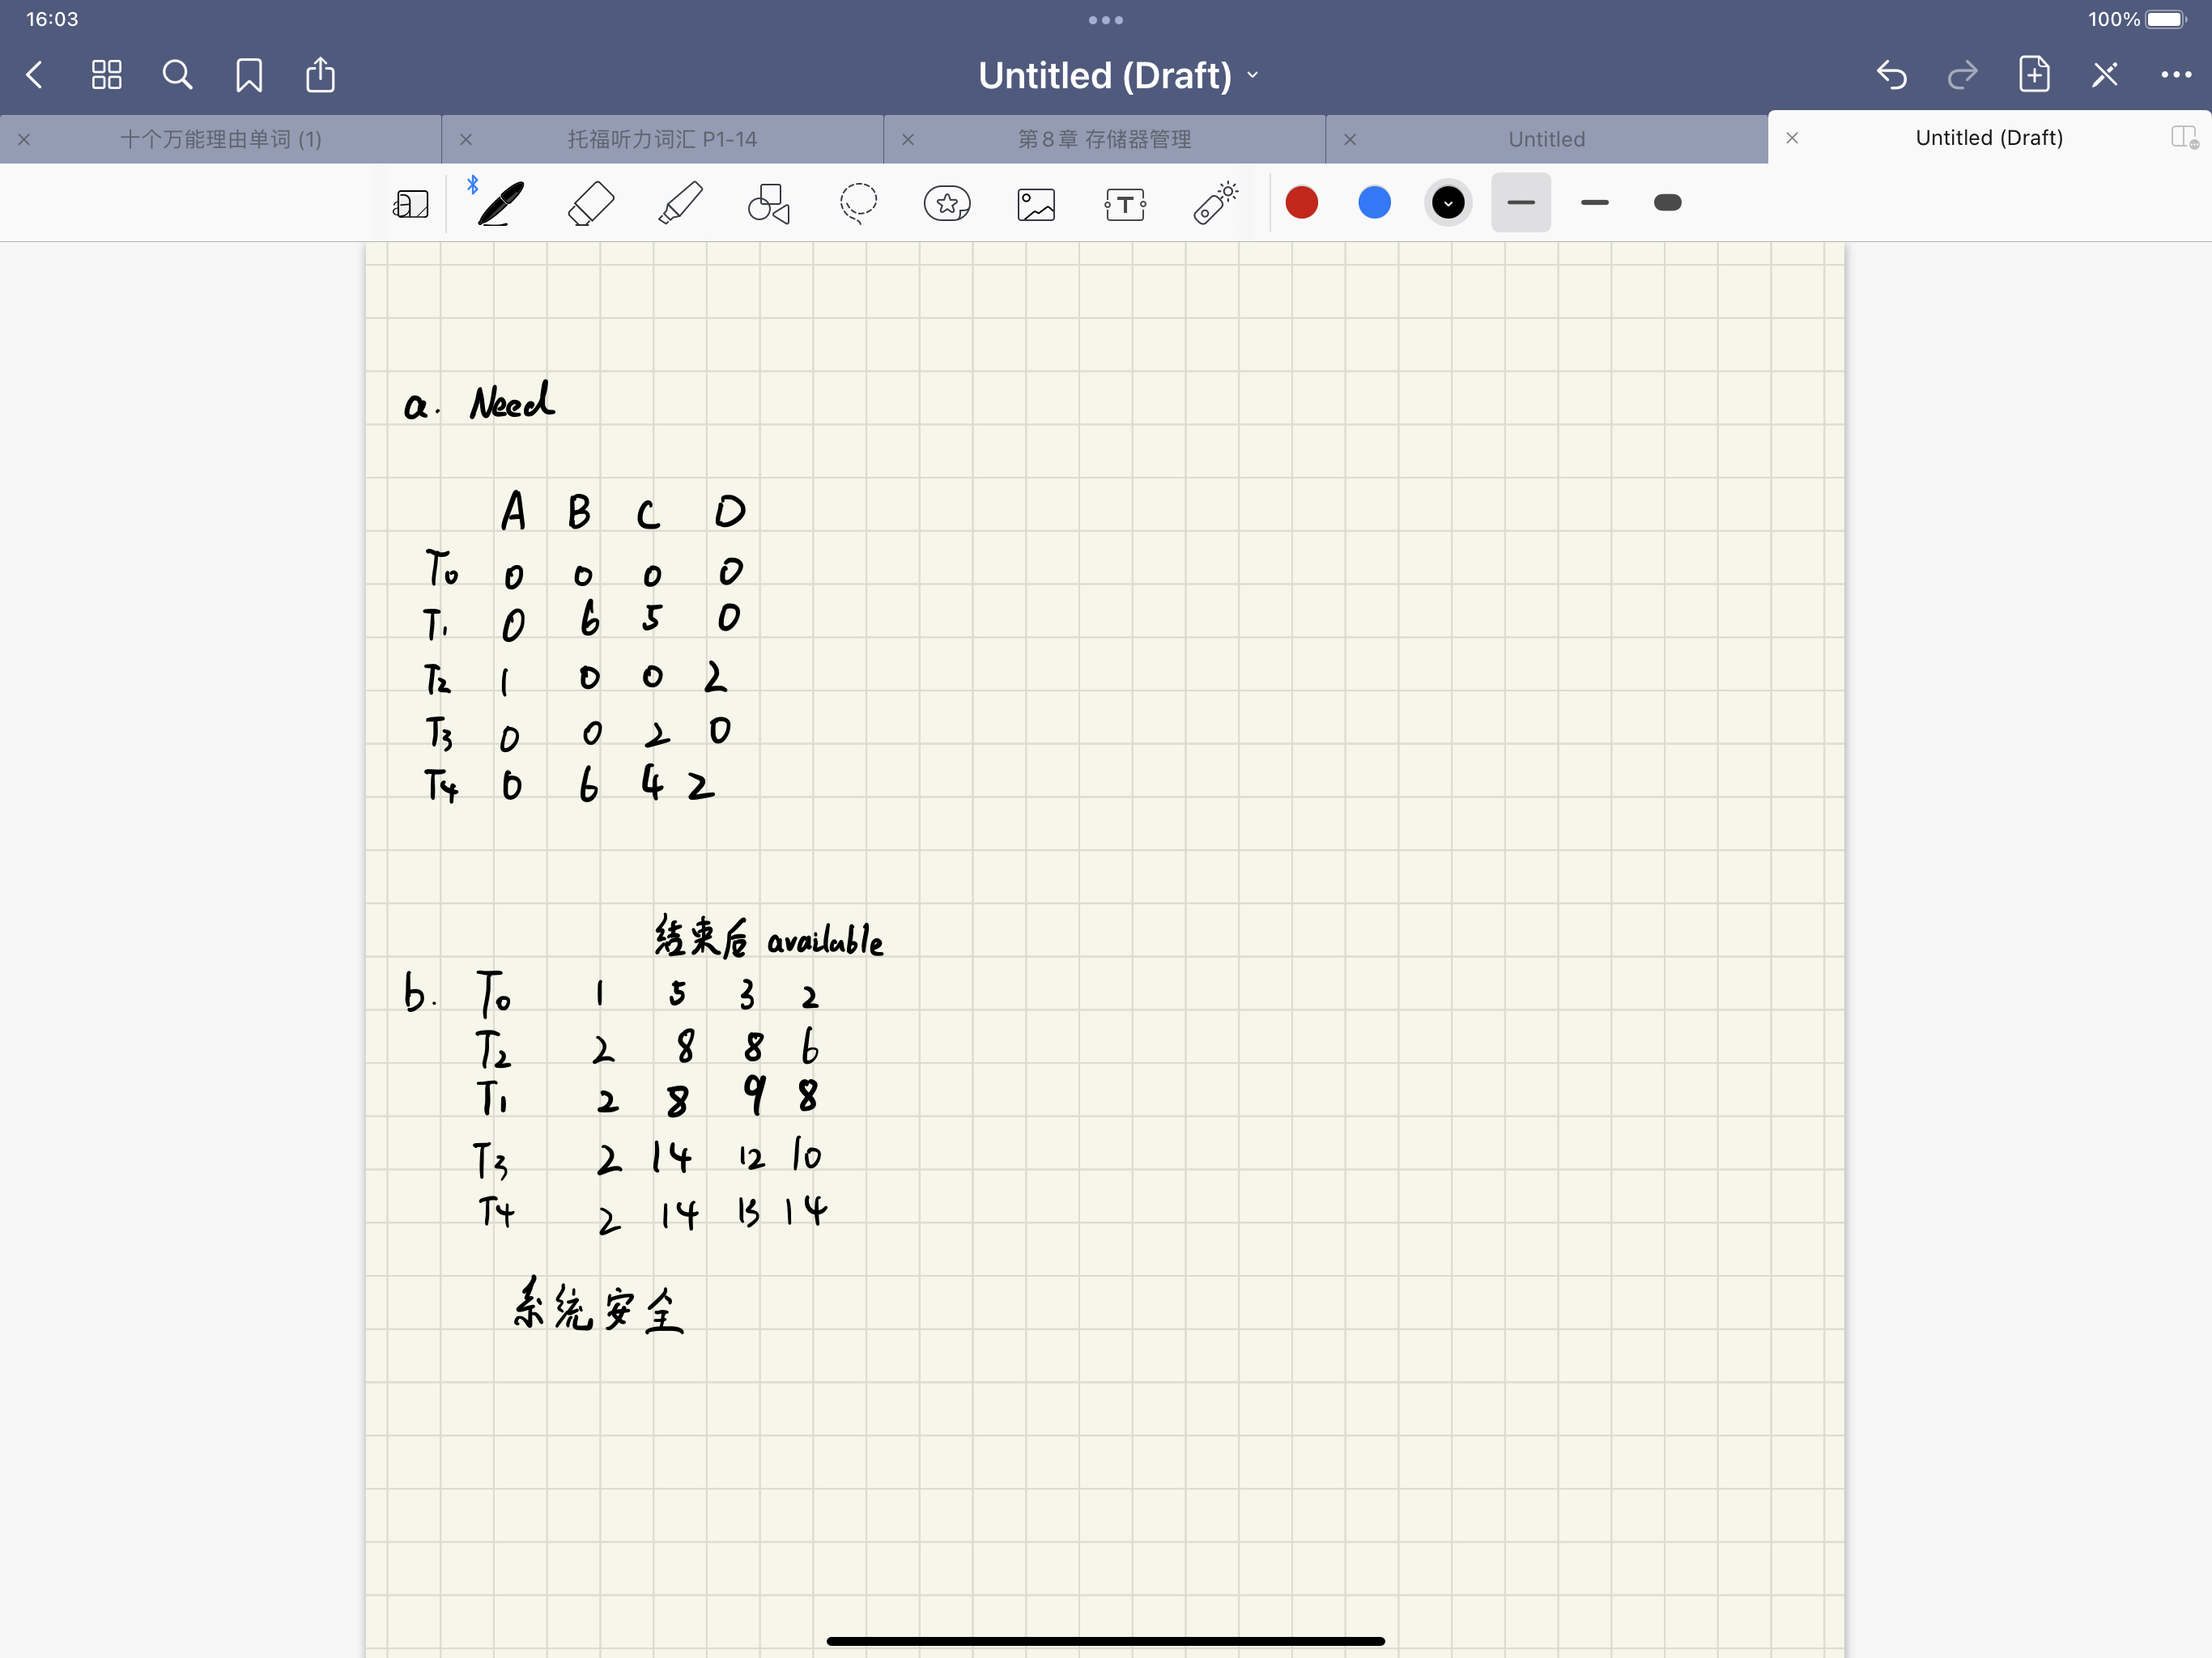 16:03
100%
Untitled (Draft)
十个万能理由单词 (1)
托福听力词汇 P1-14
第8章 存储器管理
Untitled
Untitled (Draft)
a. Need
A B C D
T0 0 0 0 0
T1 0 6 5 0
T2 1 0 0 2
T3 0 0 2 0
T4 0 6 4 2
结束后 available
b. T0 1 5 3 2
T2 2 8 8 6
T1 2 8 9 8
T3 2 14 12 10
T4 2 14 13 14
系统安全